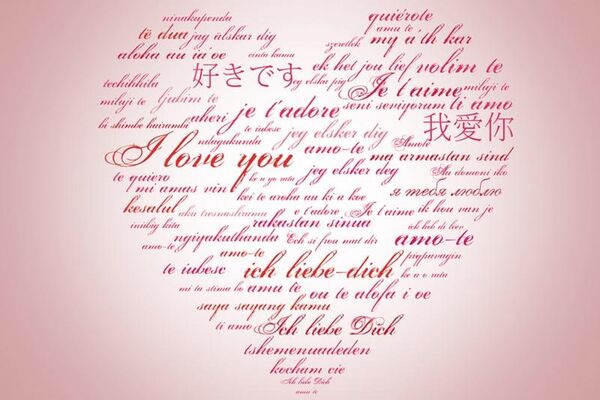 ninakupenda quiérote
të dua jag älskar dig amu te
szeretlek my a'th kar
aloha au ia'oe cinta kamu ek het jou lief volim te
techihhila 好きです jeg elsku þig Je t'aime miluji te
miluji te ljubim te seni seviyorum ti amo
aheri je t'adore 我愛你
bi shimbe huirandu te iubesc jeg elsker dig
ndagukunda amo-te
I love you my armastan sind
te quiero ke a go rata jeg elsker deg
mi amas vin я тебя люблю
kei te aroha au ki a koe
kesalul e t'adore Je t'aime ik hou van je
rakastan sinua
ngiyakuthanda Ech si frou mat dir amo-te
amo-te amo-te
te iubesc ich liebe-dich ke a o rata
mi ta stima bo amu te ou te alofa i oe
saya sayang kamu
ti amo Ich liebe Dich
tshemenuadeden
kocham cie
Ich liebe Dich
amu te